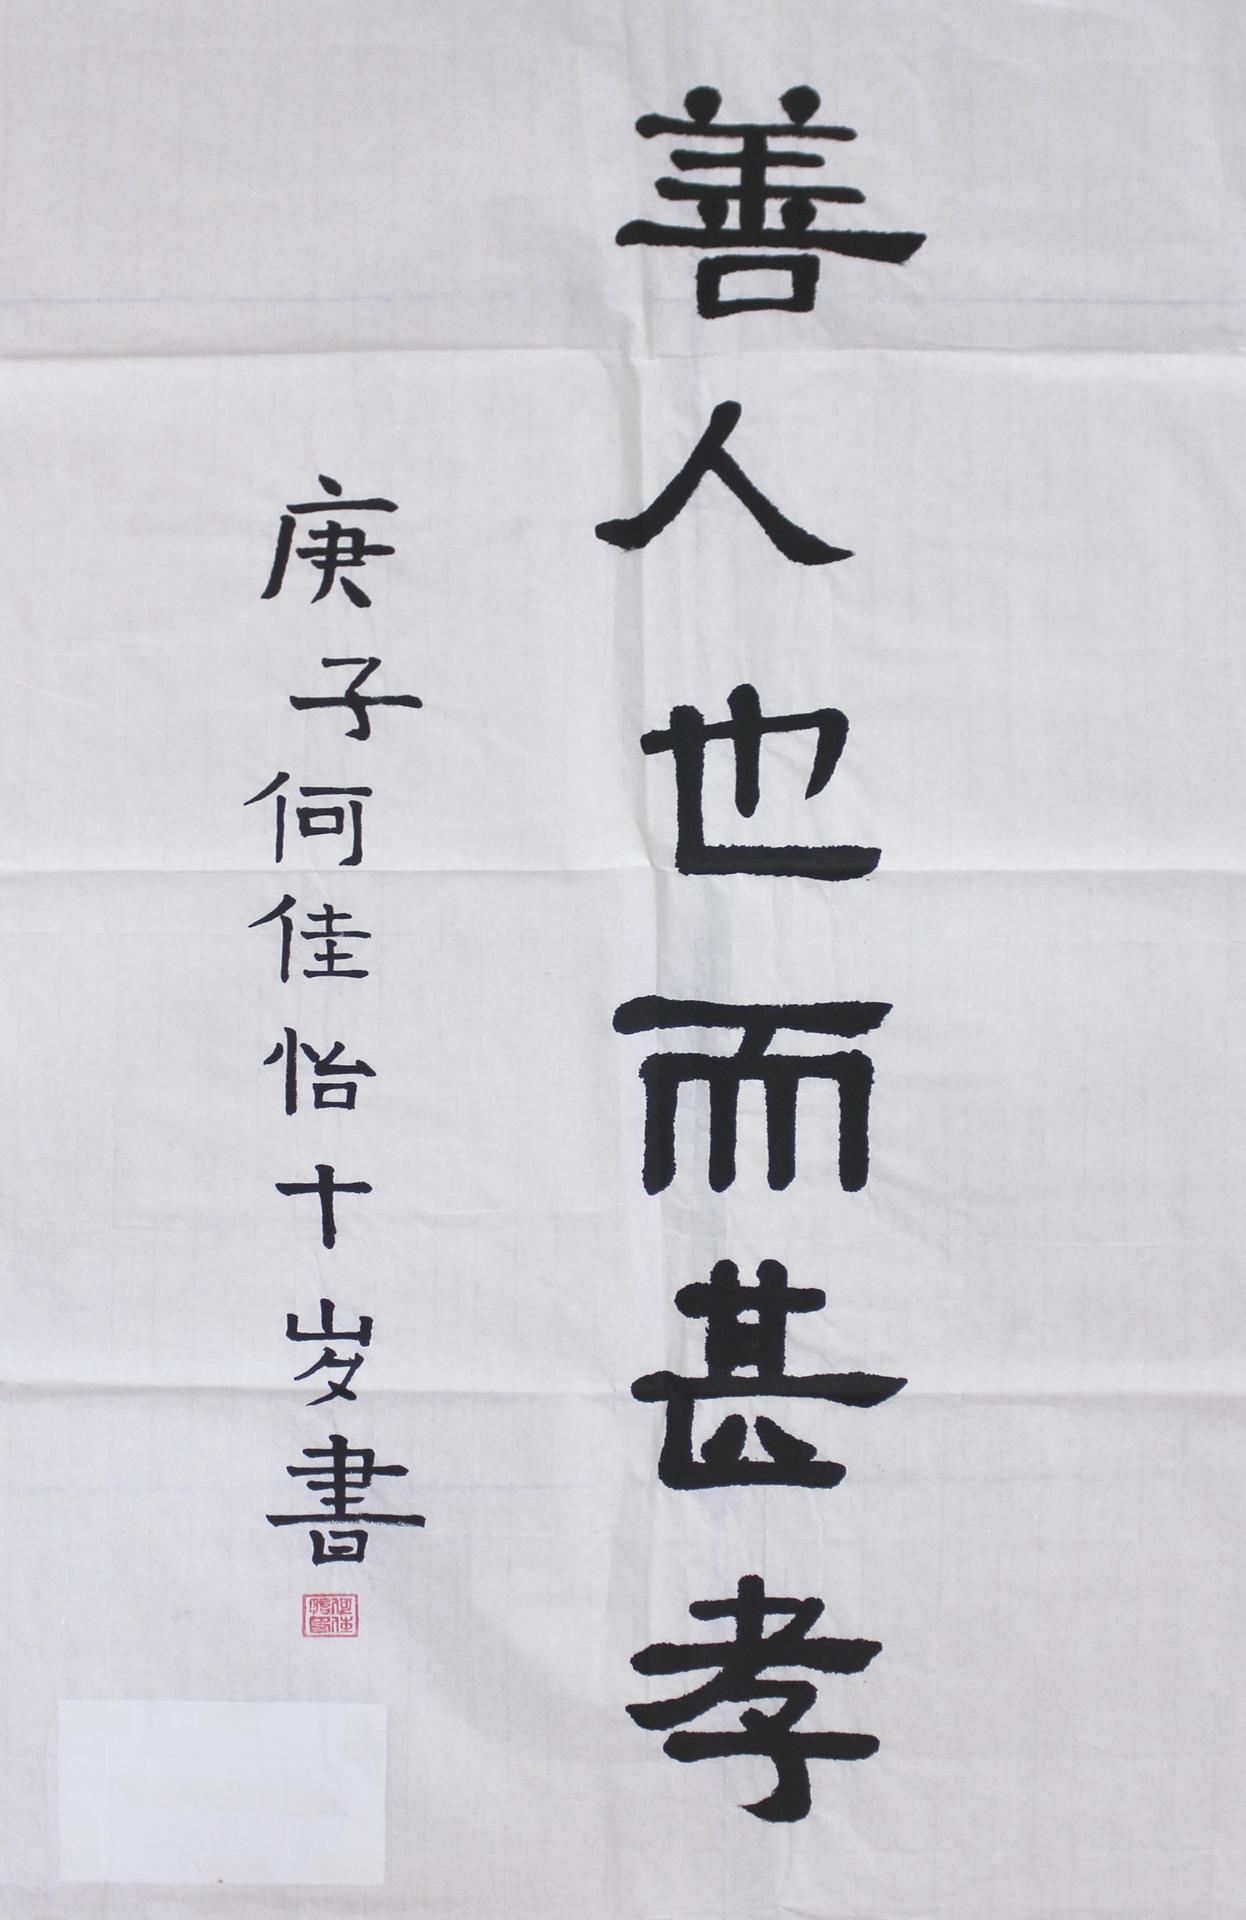 善人也而甚孝
庚子何佳怡十岁書